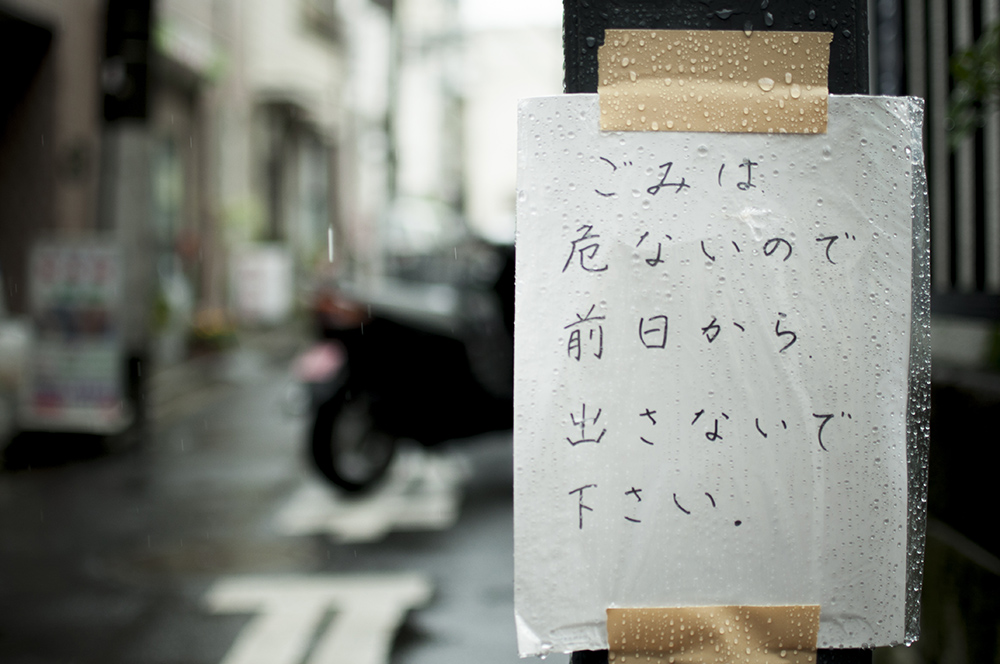 ごみは
危ないので
前日から
出さないで
下さい.